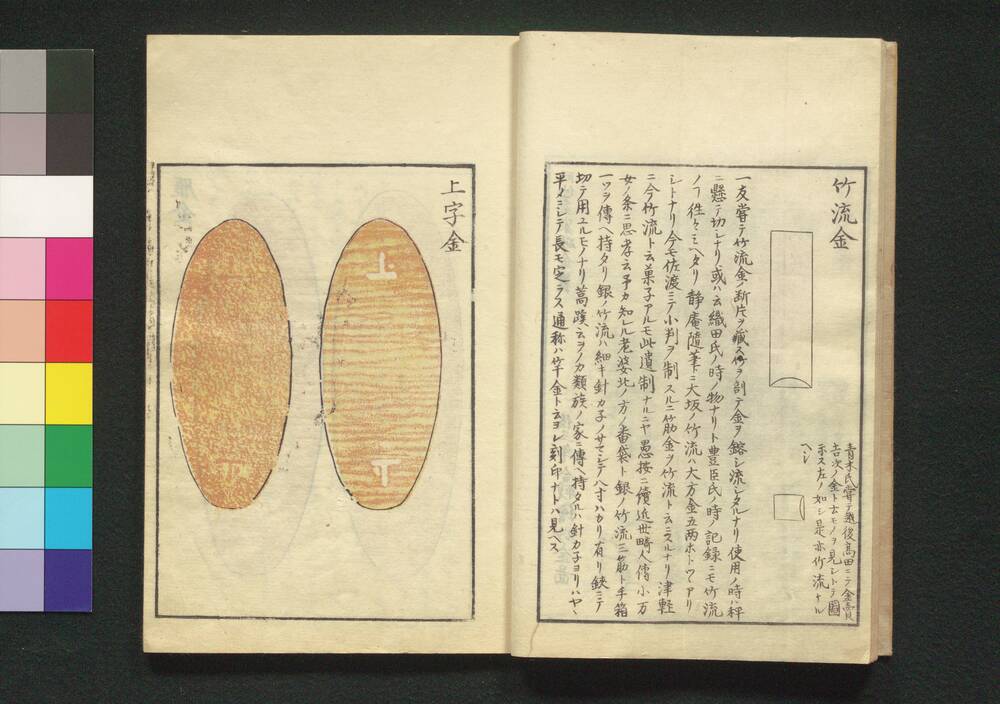 竹流金
青木氏嘗テ越後高田ニテ金賣
吉次ノ金ト云モノヲ見シトテ圖
示ス左ノ如シ是亦竹流ナル
ヘシ
一友嘗テ竹流金ノ断片ヲ蔵ス竹ヲ剖テ金ヲ鎔シ流シタルナリ使用ノ時ハ秤
ニ懸テ切シナリ或ハ云織田氏ノ時ノ物ナリト豊臣氏ノ時ノ記録ニモ竹流
ノ往々ミヘタリ静庵随筆ニ大坂ノ竹流ハ大方金五両ホトツヽアリ
シトナリ今モ佐渡ニテ小判ヲ制スルニ筋金ヲ竹流ト云ニスルナリ津軽
ニ今竹流ト云菓子アルモ此遺制ナルニヤ愚按ニ續近世畸人傳小万
女ノ条ニ思孝云予カ知レル老婆北ノ方ノ番袋ト銀ノ竹流三筋ト手箱
一ツヲ傳ヘ持タリ銀ノ竹流ハ細キ針カ子ノサマシテ八寸ハカリ有リ鋏ニテ
切テ用ユルモノナリ蒿蹊云ヲノカ類族ノ家ニ傳ヘ持タルハ針カ子ヨリハヤヽ
平メニシテ長モ定ラス通称ハ竿金ト云ヨシ刻印ナトハ見ヘス
上字金
上